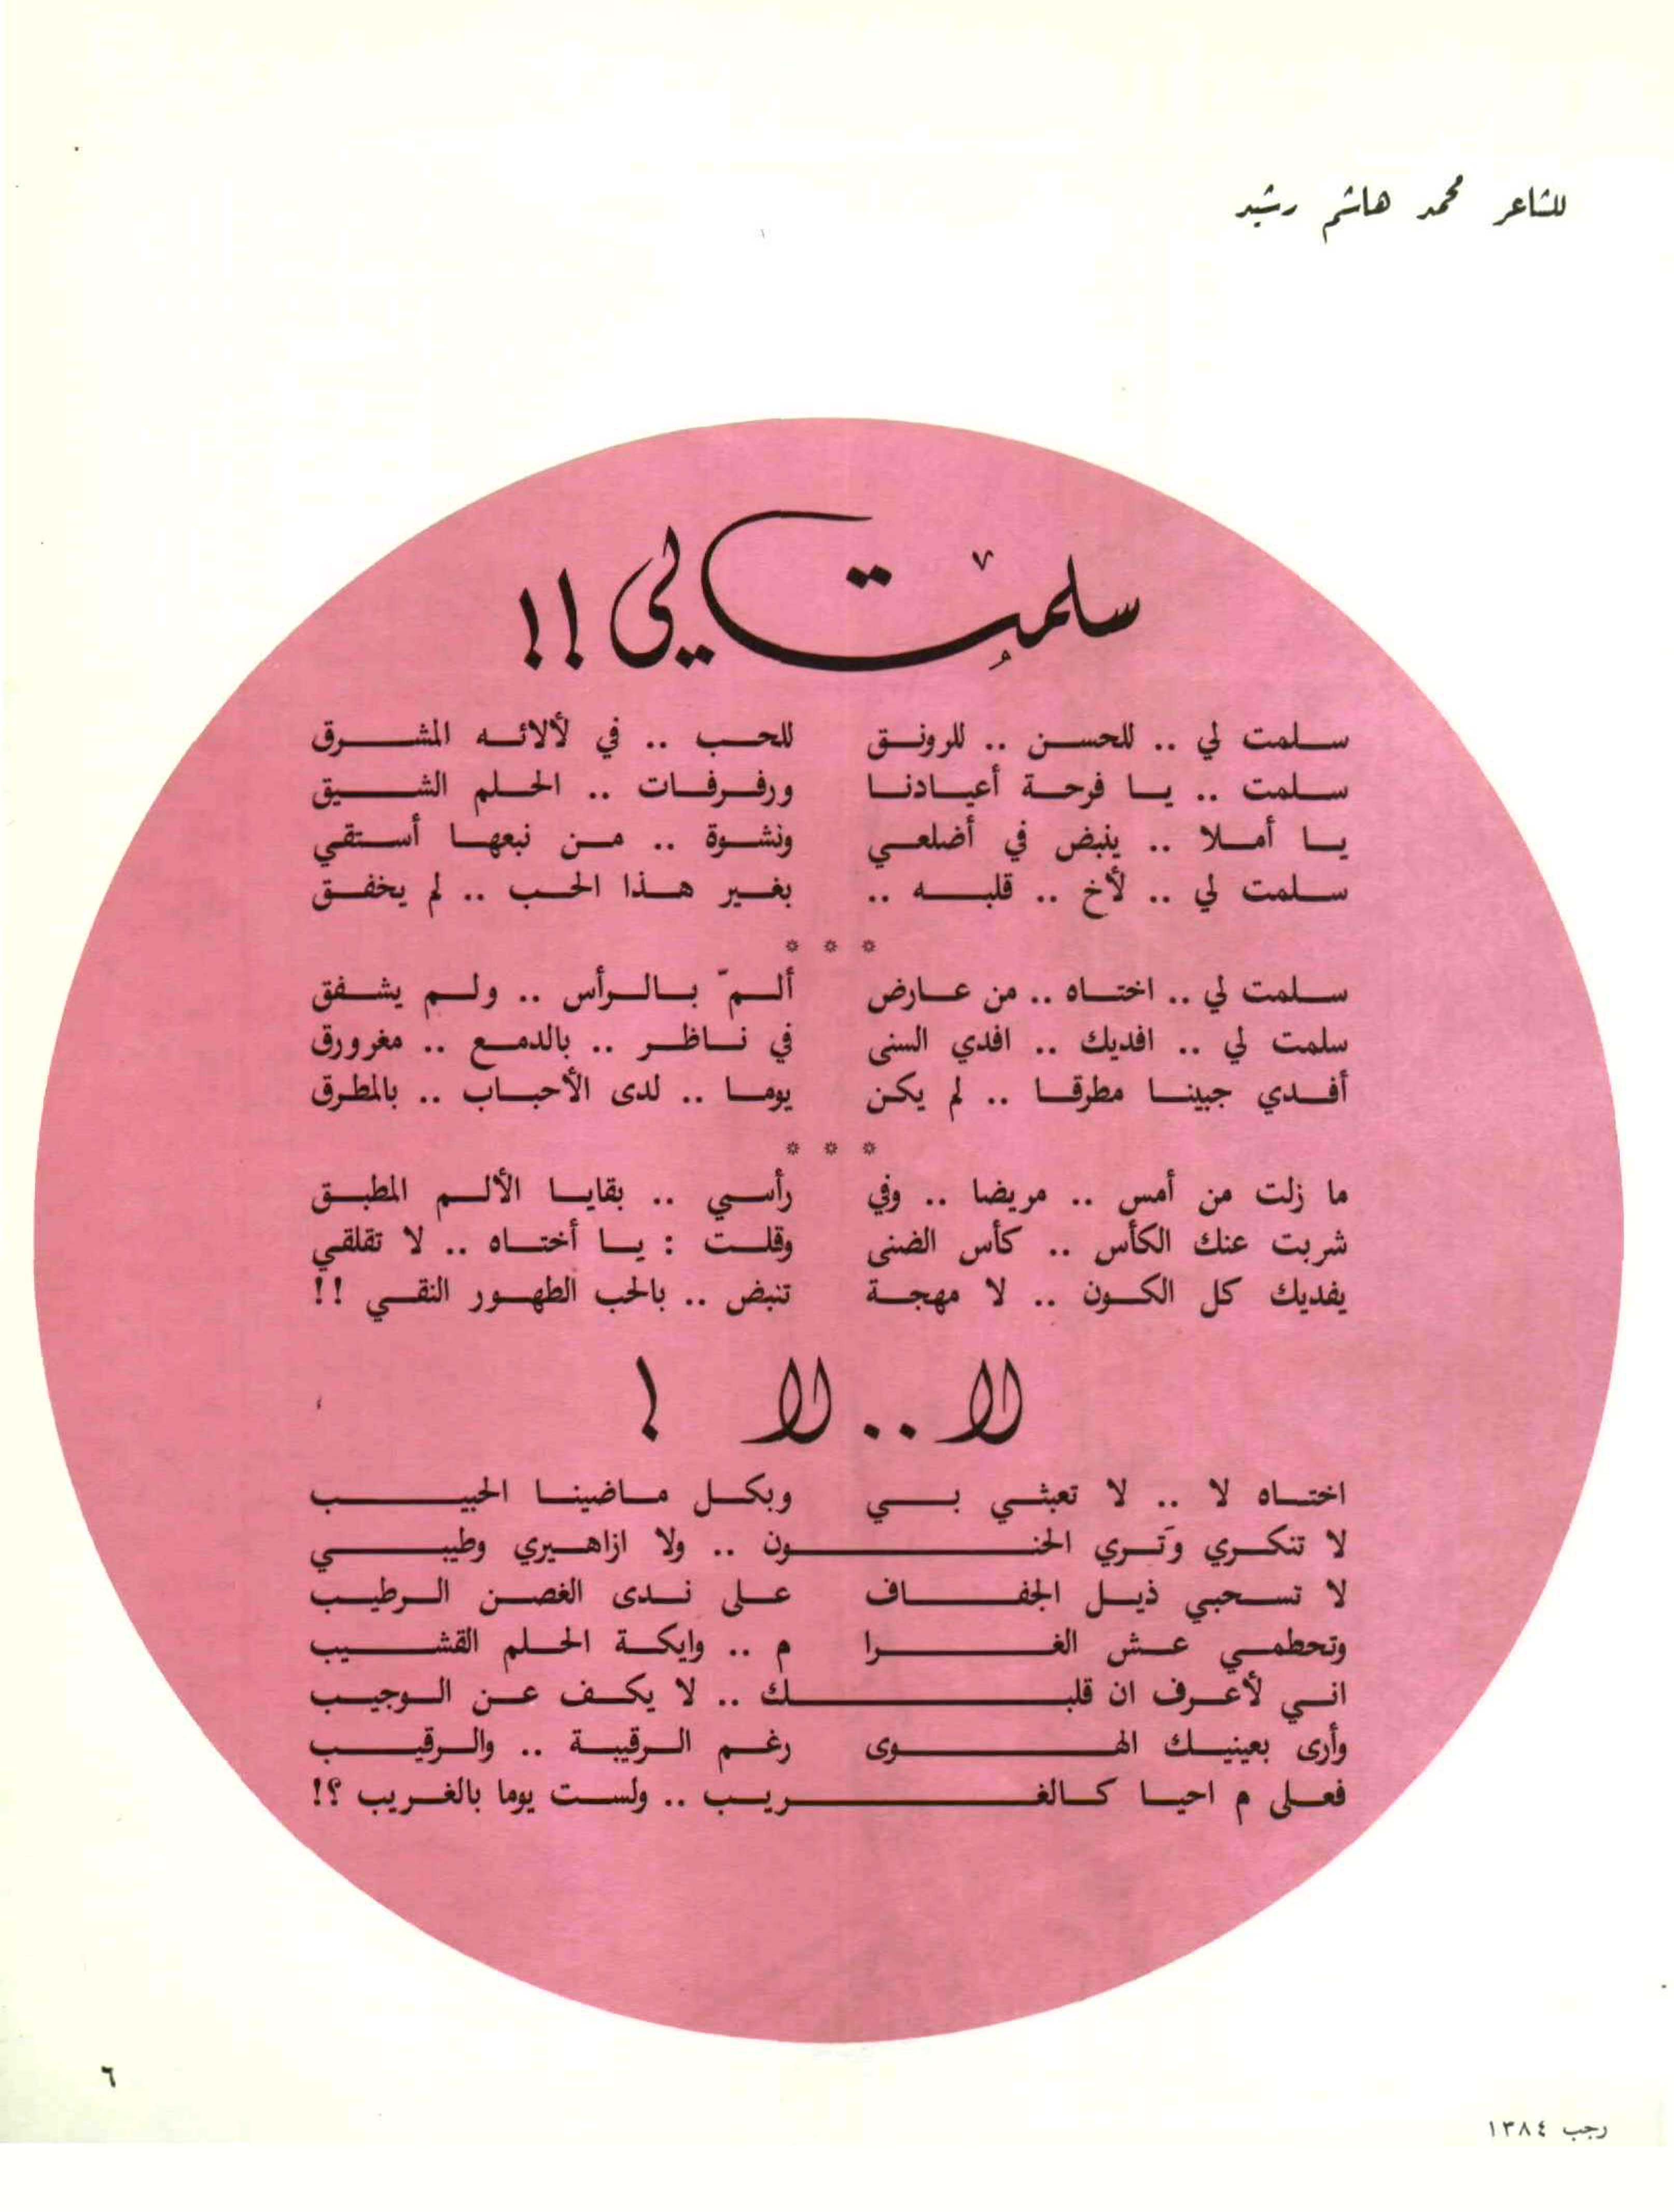 للشاعر محمد هاشم رشيد
سلمت لي !!
سلمت لي .. للحسن .. للرونق للحب .. في لألائه المشرق
سلمت .. يا فرحة أعيادنا ورفرفات .. الحلم الشيق
يا أملا .. ينبض في أضلعي ونشوة .. من نبعها أستقي
سلمت لي .. لأخ .. قلبه .. بغير هذا الحب .. لم يخفق
* * *
سلمت لي .. اختاه .. من عارض ألمّ بالرأس .. ولم يشفق
سلمت لي .. افديك .. افدي السنى في ناظر .. بالدمع .. مغرورق
أفدي جبينا مطرقا .. لم يكن يوما .. لدى الأحباب .. بالمطرق
* * *
ما زلت من أمس .. مريضا .. وفي رأسي .. بقايا الألم المطبق
شربت عنك الكأس .. كأس الضنى وقلت : يا أختاه .. لا تقلقي
يفديك كل الكون .. لا مهجة تنبض .. بالحب الطهور النقي !!
لا .. لا !
اختاه لا .. لا تعبثي بي وبكل ماضينا الحبيب
لا تنكري وَتري الحنون .. ولا ازاهيري وطيبي
لا تسحبي ذيل الجفاف على ندى الغصن الرطيب
وتحطمي عش الغرا م .. وايكة الحلم القشيب
اني لأعرف ان قلبك .. لا يكف عن الوجيب
وأرى بعينيك الهوى رغم الرقيبة .. والرقيب
فعلى م احيا كالغريب .. ولست يوما بالغريب ؟!
٦
رجب ١٣٨٤